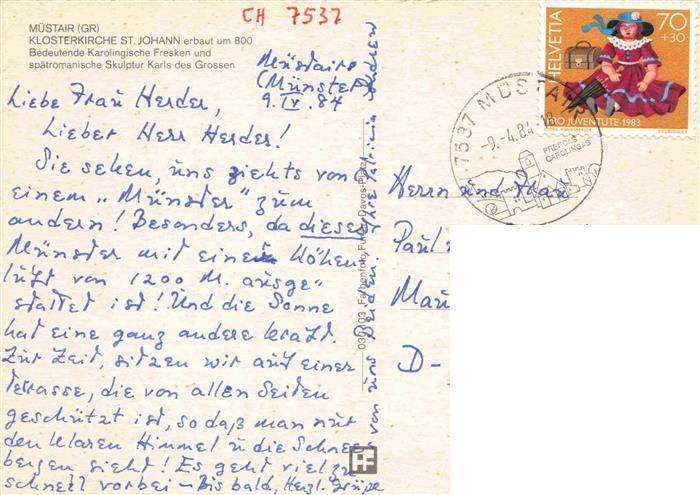 CH 7537
MÜSTAIR (GR)
KLOSTERKIRCHE ST. JOHANN erbaut um 800
Bedeutende Karolingische Fresken und
spätromanische Skulptur Karls des Grossen
Müstair
(Münster)
9. IV. 84
Liebe Frau Herder,
Lieber Herr Herder!
Sie sehen, uns ziehts von
einem "Münster" zum
andern! Besonders, da dieser
Münster mit einer Höhen
luft von 1200 M. ausge"
stattet ist! Und die Sonne
hat eine ganz andere Kraft.
Zur Zeit, sitzen wir auf einer
Terrasse, die von allen Seiten
geschützt ist, so daß man nur
den klaren Himmel u die Schnee
bergen sieht! Es geht viel zu
schnell vorbei - Bis bald, Herzl. Grüße
von uns Beiden Ihre
Foto, Davos-Platz
HELVETIA
70
+30
PRO JUVENTUTE 1983
7537 MÜSTAIR
-9.-4.84-18
FRESCAS
CAROLINGAS
Herrn und Frau
Paul
Mau
D-